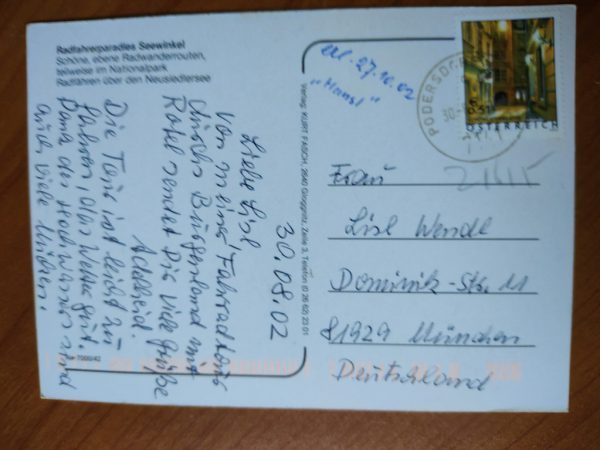 Radfahrerparadies Seewinkel
Schöne, ebene Radwanderrouten,
teilweise im Nationalpark
Radfähren über den Neusiedlersee
27.10.02
ÖSTERREICH
30.08.02
Liebe Lisl
Von meiner Fahrradtour
durchs Burgenland mit
sendet Dir viele Grüße
Adelheid.
Die Tour ist leicht zu
fahren, das Wetter gut.
Dank
auch viele Mücken.
Verlag: KURT FASCH, 2640 Gloggnitz, Zeile 3, Telefon (0 26 62) 23 01
Frau
Lisl Wendl
Dominik-Str. 11
81929 München
Deutschland